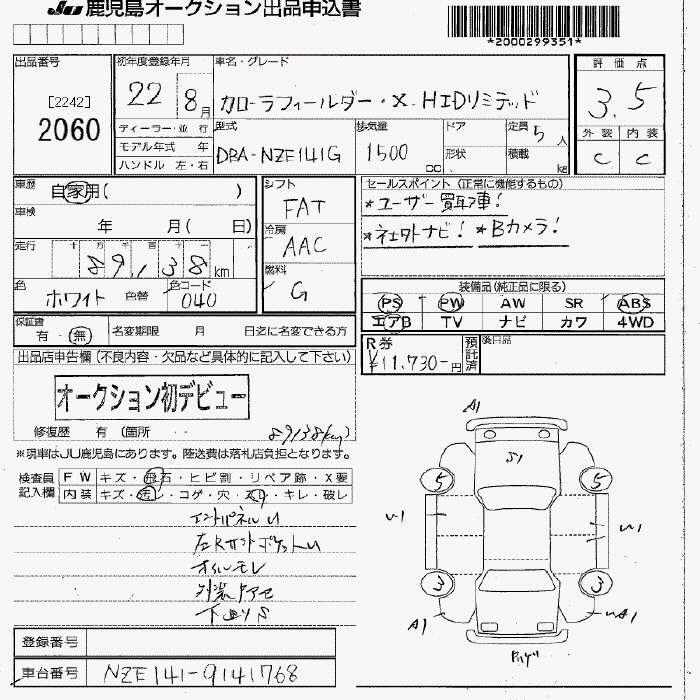 JU 鹿児島オークション出品申込書
*2000299351*
出品番号
[2242]
2060
初年度登録年月
22 8月
ディーラー・並 行
モデル年式 年
ハンドル 左・右
車名・グレード
カローラフィールダー・X HIDリミテッド
型式
DBA-NZE141G
排気量
1500
cc
ドア
形状
定員 5 人
積載 kg
評 価 点
3.5
外 装 内 装
C C
車歴
自家用( )
車検
年 月( 日)
走行
十 万 千 百 十
89,138 km
色
ホワイト 色替
色コード
040
シフト
FAT
冷房
AAC
燃料
G
セールスポイント (正常に機能するもの)
*ユーザー買取車!
*社外ナビ! *Bカメラ!
装備品(純正品に限る)
PS PW AW SR ABS
エアB TV ナビ カワ 4WD
保証書
有・無
名変期限 月 日迄に名変できる方
R券
¥11,730-円
預託済
後日品
出品店申告欄(不良内容・欠品など具体的に記入して下さい)
オークション初デビュー
修復歴 有 (箇所
89138km)
※現車はJU鹿児島にあります。陸送費は落札店負担となります。
検査員記入欄
FW キズ・飛石・ヒビ割・リペア跡・X要
内装 キズ・汚レ・コゲ・穴・スレ・キレ・破レ
インパネルU
オイルモレ
下回りS
A1
S1
5 5
U1
3 3
A1
登録番号
車台番号
NZE141-9141768